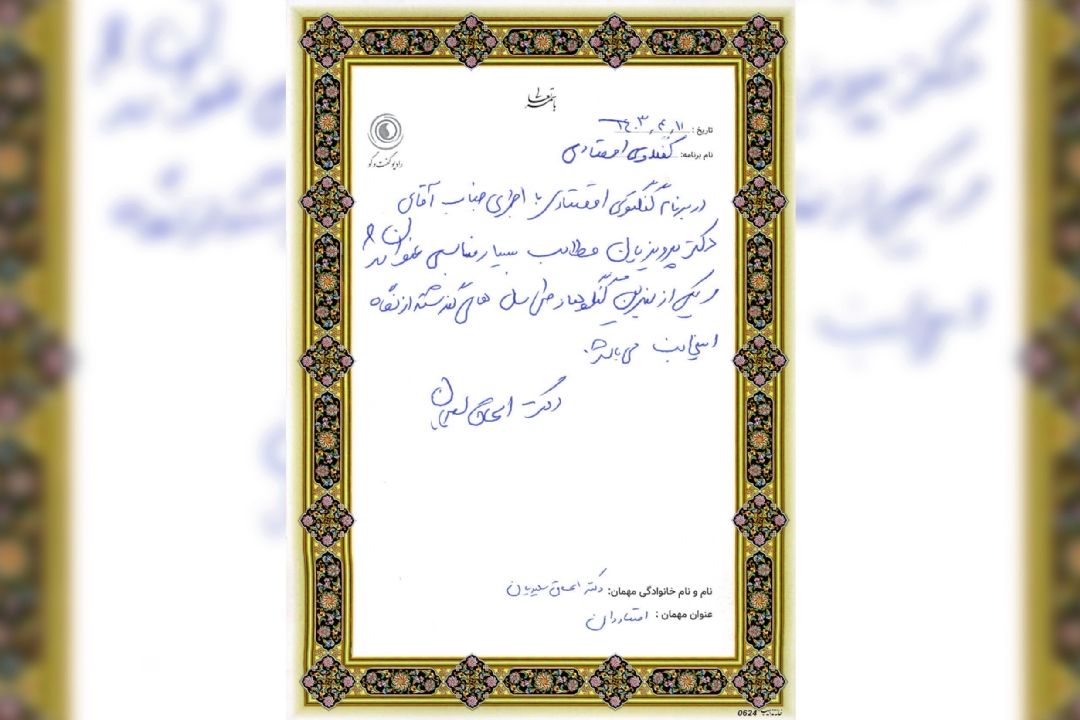 باسمه تعالی
رادیو گفت و گو
تاریخ: ۱۴۰۳,۴,۱۱
نام برنامه: گفتگوی اقتصادی
در برنامه گفتگوی اقتصادی با اجرای جناب آقای
دکتر پرویزیان مطالب بسیار مناسبی
و یکی از بهترین گفتگوها در طی سال های گذشته از نگاه
اینجانب می باشد.
دکتر اسحاق سعیدیان
نام و نام خانوادگی مهمان: دکتر اسحاق سعیدیان
عنوان مهمان: اقتصاددان
0624